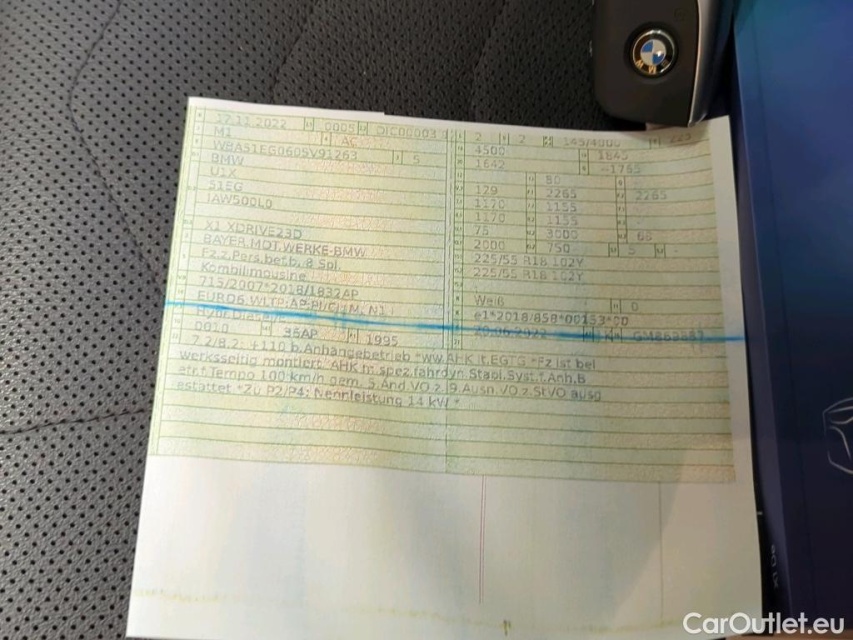 17.11.2022 0005 DIC00003
M1 AC
WBA51EG0605V91263 5
BMW
U1X
51EG
IAW500L0
X1 XDRIVE23D
BAYER.MOT.WERKE-BMW
Fz.z.Pers.bef.b. 8 Spl.
Kombilimousine
715/2007*2018/1832AP
EURO6 WLTP;AP;PI/CI;M, N1 I
Hybr.Diesel
0010 36AP 1995
2 2 145/4000 225
4500 1845
1642 -1765
80
129 2265 2265
1170 1155 -
1170 1155 -
75 3000 66
2000 750 5 -
225/55 R18 102Y
225/55 R18 102Y
Weiß 0
e1*2018/858*00153*00
20.06.2022 K
7.2/8.2: +110 b.Anhangebetrieb *ww.AHK lt.EGTG *Fz ist bei
werksseitig montiert. AHK m spez.fahrdyn.Stabil.Syst.f.Anh.B
etr.f.Tempo 100 km/h gem. 3.Änd VO z.9.Ausn.VO z.StVO ausg
estattet *Zu P2/P4: Nennleistung 14 kW *
BMW
CarOutlet.eu